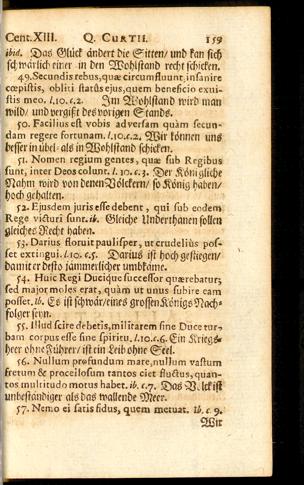 Cent. XIII. Q. CURTII. 159
ibid. Das Glück ändert die Sitten/ und kan sich
schwärlich einer in den Wohlstand recht schicken.
49. Secundis rebus, quæ circumfluunt, insanire
cœpistis, obliti statûs ejus, quem beneficio exui-
stis meo. l. 10. c. 2. Im Wohlstand wird man
wild/ und vergist des vorigen Stands.
50. Facilius est vobis adversam quàm secun-
dam regere fortunam. l. 10. c. 2. Wir können uns
besser in übel- als in Wohlstand schicken.
51. Nomen regium gentes, quæ sub Regibus
sunt, inter Deos colunt. l. 10. c. 3. Der Königliche
Nahm wird von denen Völckern/ so König haben/
hoch gehalten.
52. Ejusdem juris esse debent, qui sub eodem
Rege victuri sunt. ib. Gleiche Underthanen sollen
gleiches Recht haben.
53. Darius floruit paulisper, ut crudeliùs pos-
set extingui. l. 10. c. 5. Darius ist hoch gestiegen/
damit er desto jämmerlicher umbkäme.
54. Huic Regi Ducique successor quærebatur;
sed major moles erat, quàm ut unus subire eam
posset. ib. Es ist schwär/ eines grossen Königs Nach-
folger seyn.
55. Illud scire debetis, militarem sine Duce tur-
bam corpus esse sine spiritu. l. 10. c. 6. Ein Kriegs-
heer ohne Führer/ ist ein Leib ohne Seel.
56. Nullum profundum mare, nullum vastum
fretum & procellosum tantos ciet fluctus, quan-
tos multitudo motus habet. ib. c. 7. Das Volck ist
unbeständiger als das wallende Meer.
57. Nemo ei satis fidus, quem metuat. ib. c. 9.
Wir